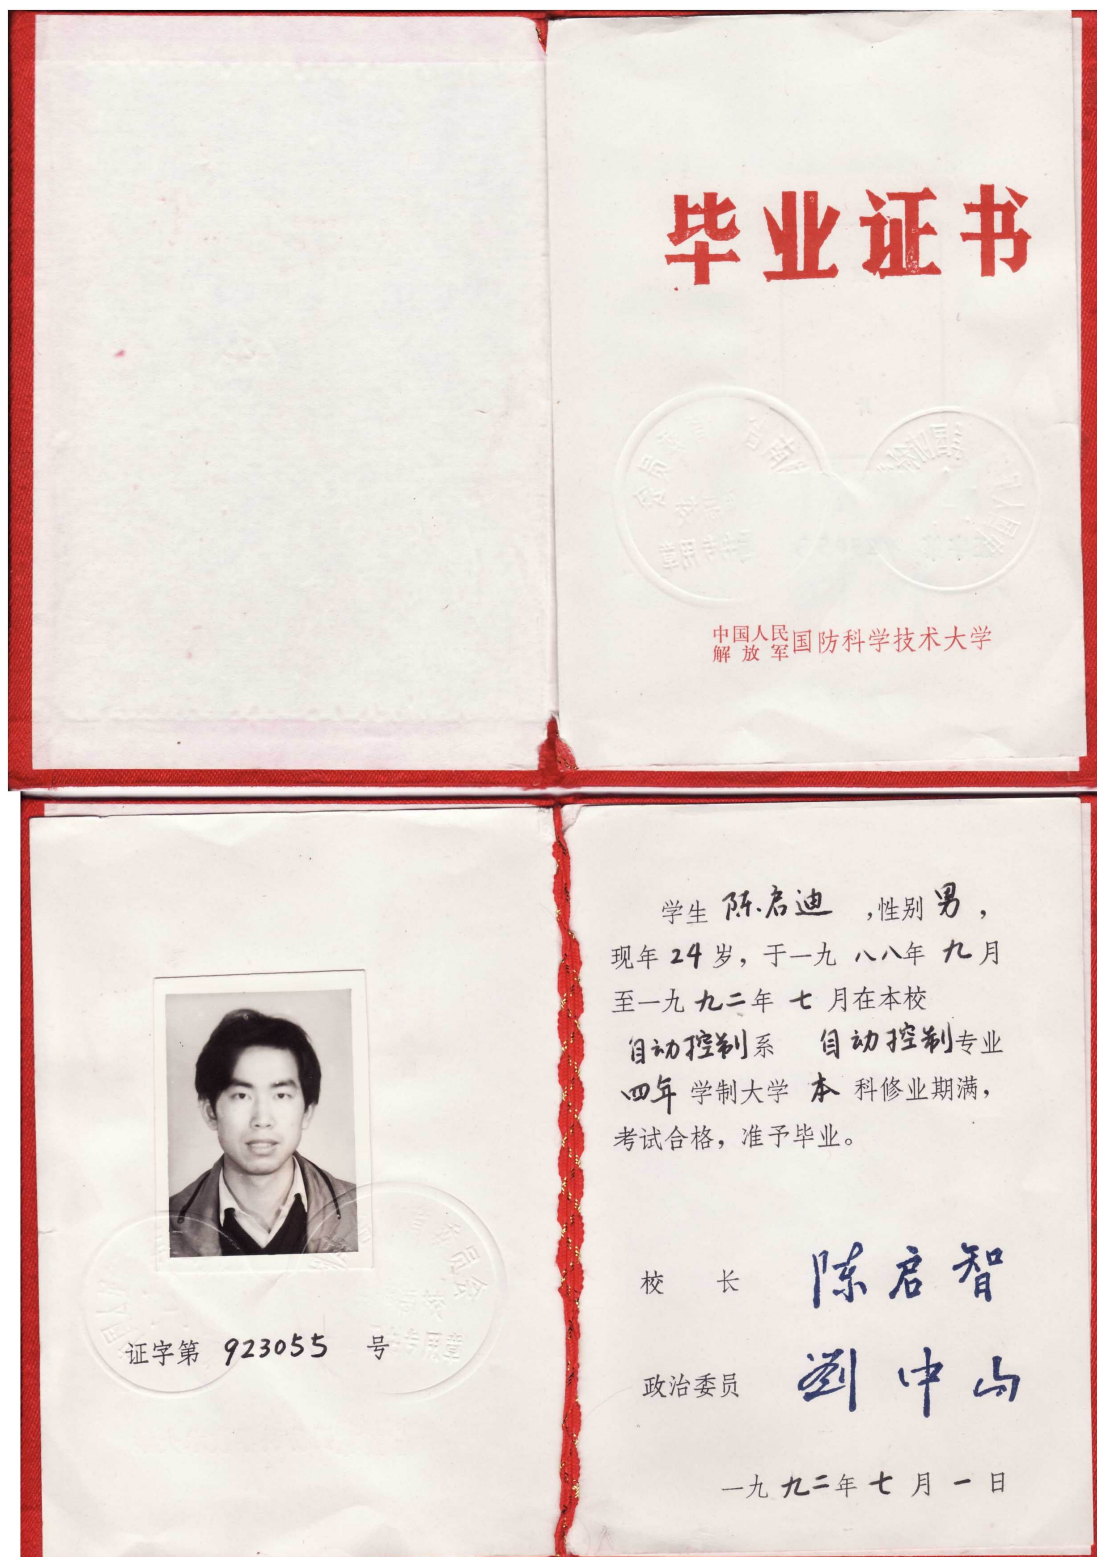 毕业证书
中国人民解放军国防科学技术大学
证字第 923055 号
学生 陈启迪 ,性别 男,
现年 24 岁,于一九八八年九月
至一九九二年七月在本校
自动控制系 自动控制专业
四年 学制大学 本 科修业期满,
考试合格,准予毕业。
校 长 陈启智
政治委员 刘中山
一九九二年七月一日